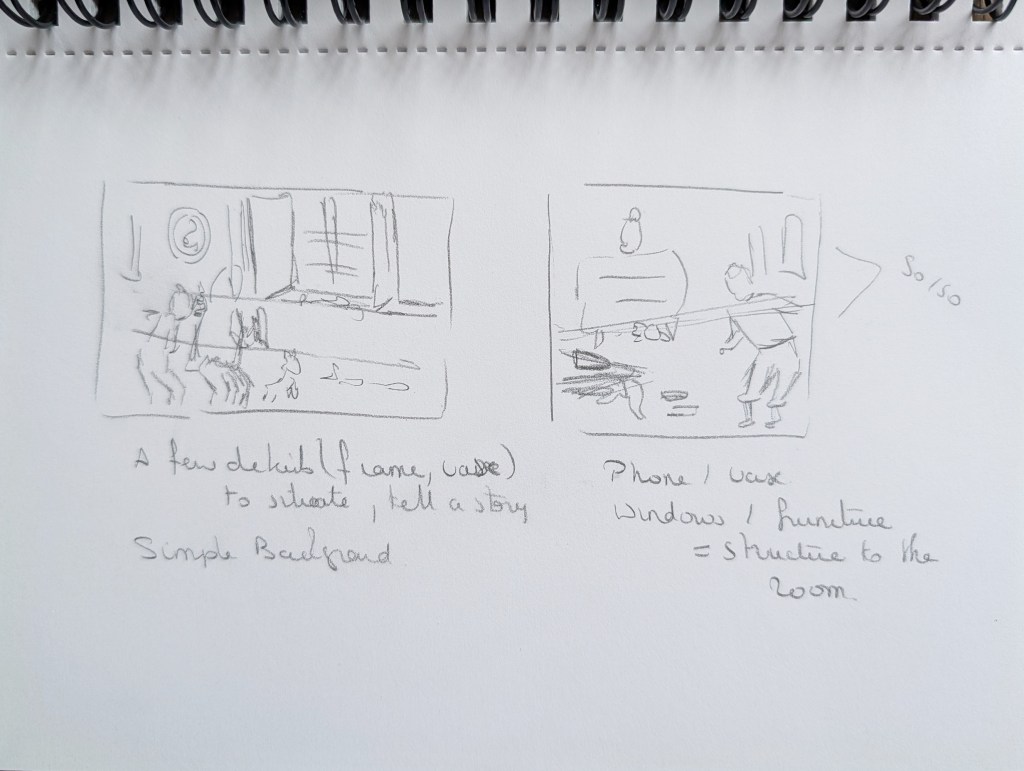 A few details (frame, vase)
to situate, tell a story
Simple Background
Phone / vase
windows / furniture
= structure to the
room
50/50